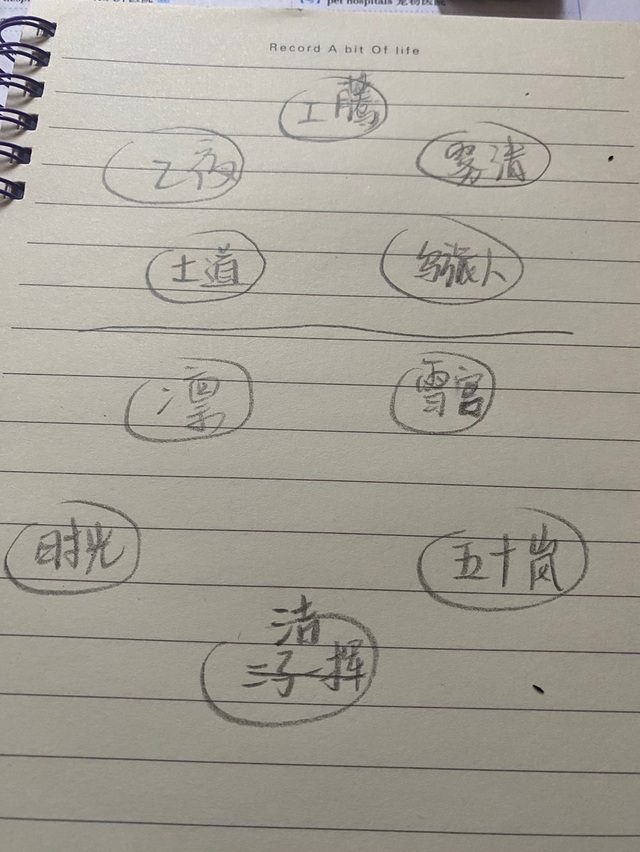 pet hospitals 宠物医院
Record A bit Of life
工藤
乙夜 雾清
士道 乌旅人
凛 雪宫
时光 五十岚
洁
二子一挥